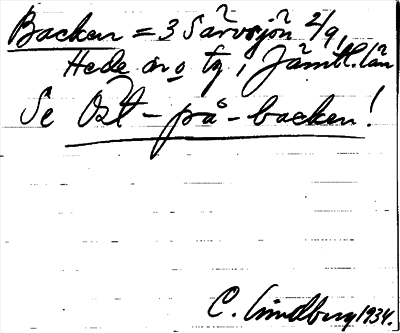 Backen = 3 Särvsjön 2/9,
Hede sn o tg, Jämtl. län
Se Ost-på-backen!
C. Lindberg 1934.